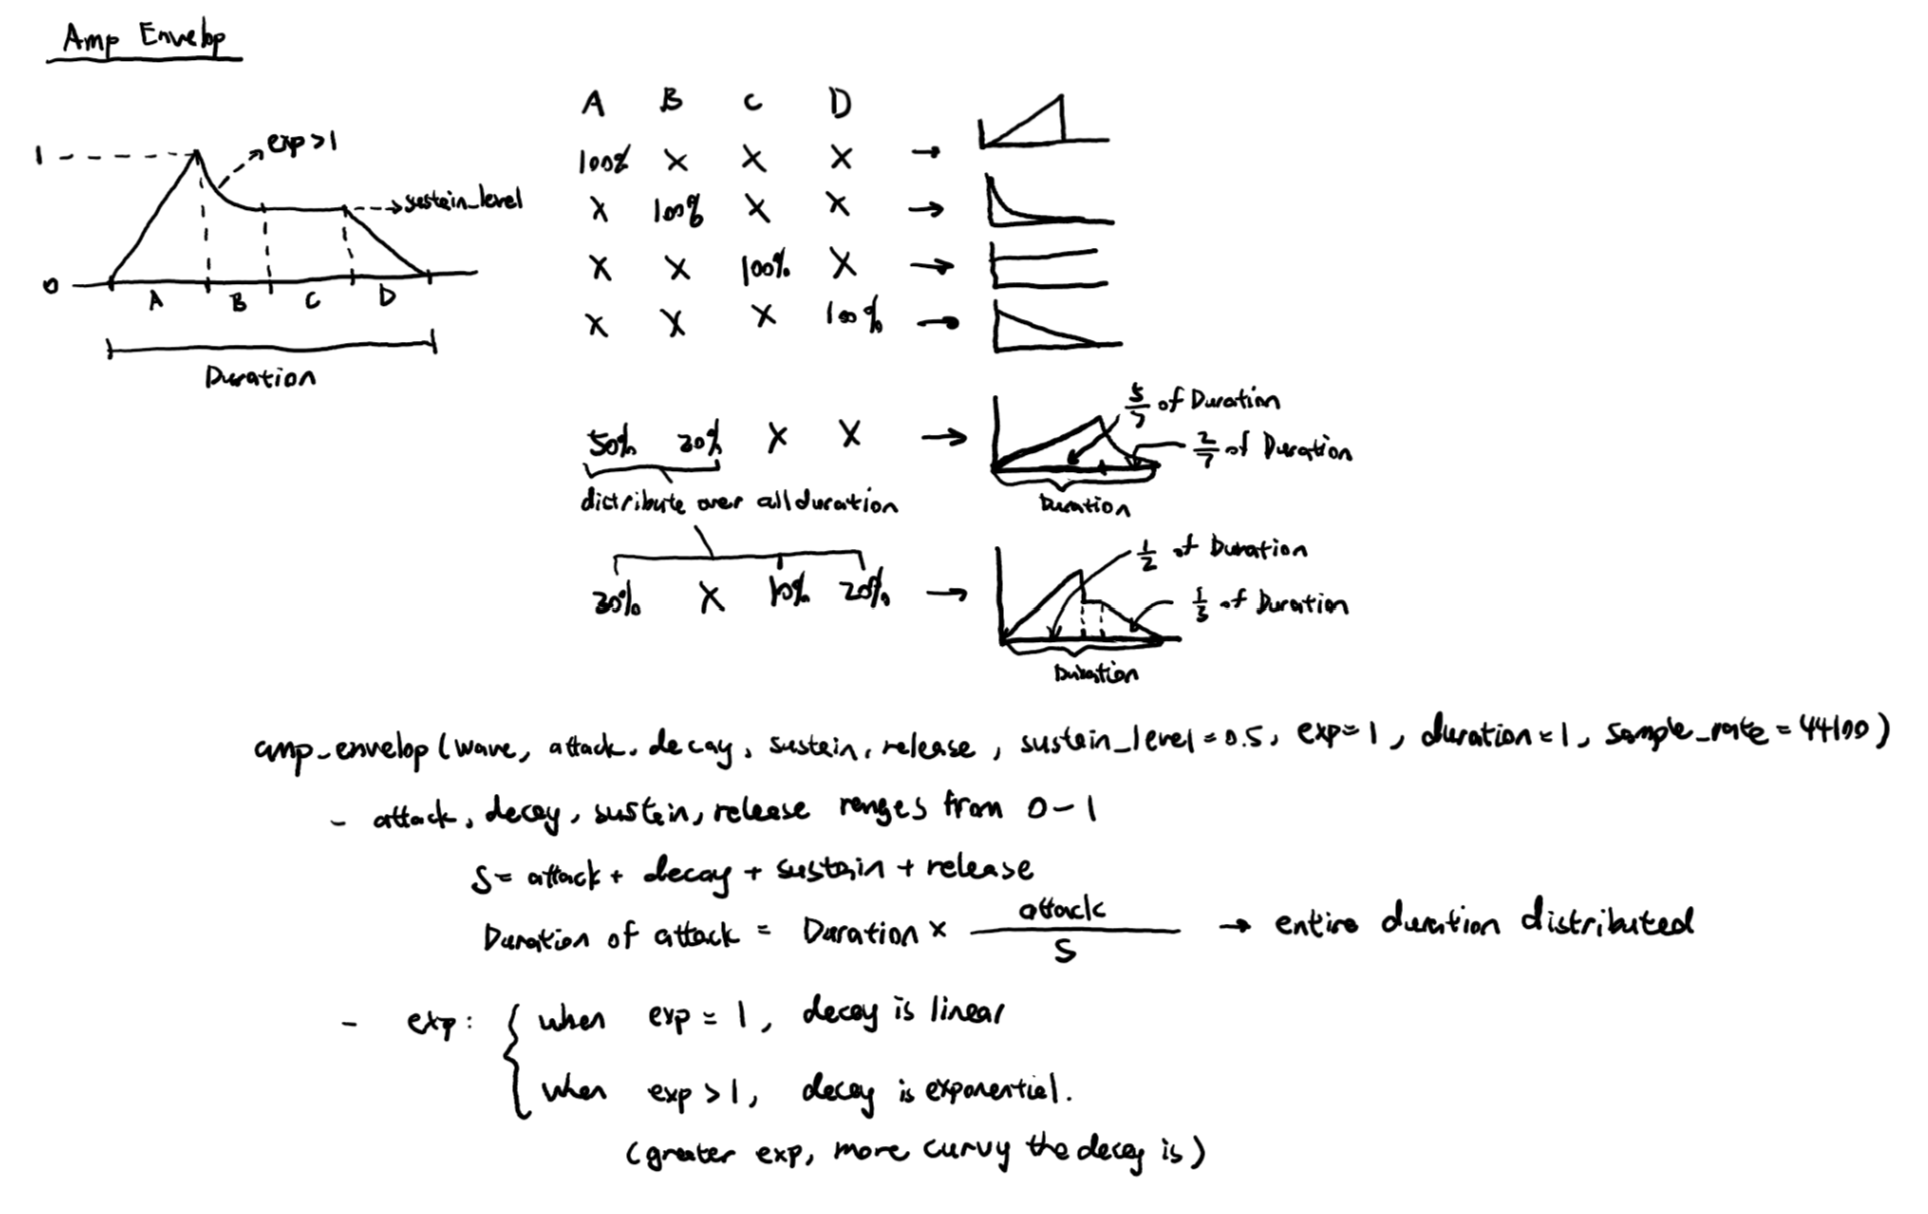 Amp Envelop
1
exp>1
sustain_level
0
A B C D
Duration
A B C D
100% X X X →
X 100% X X →
X X 100% X →
X X X 100% →
50% 20% X X →
5/7 of Duration
2/7 of Duration
Duration
distribute over all duration
30% X 10% 20% →
1/2 of Duration
1/3 of Duration
Duration
amp_envelop(wave, attack, decay, sustain, release, sustain_level=0.5, exp=1, duration=1, sample_rate=44100)
- attack, decay, sustain, release ranges from 0-1
S= attack + decay + sustain + release
Duration of attack = Duration × attack / S → entire duration distributed
- exp: { when exp = 1, decay is linear
when exp>1, decay is exponential.
(greater exp, more curvy the decay is)